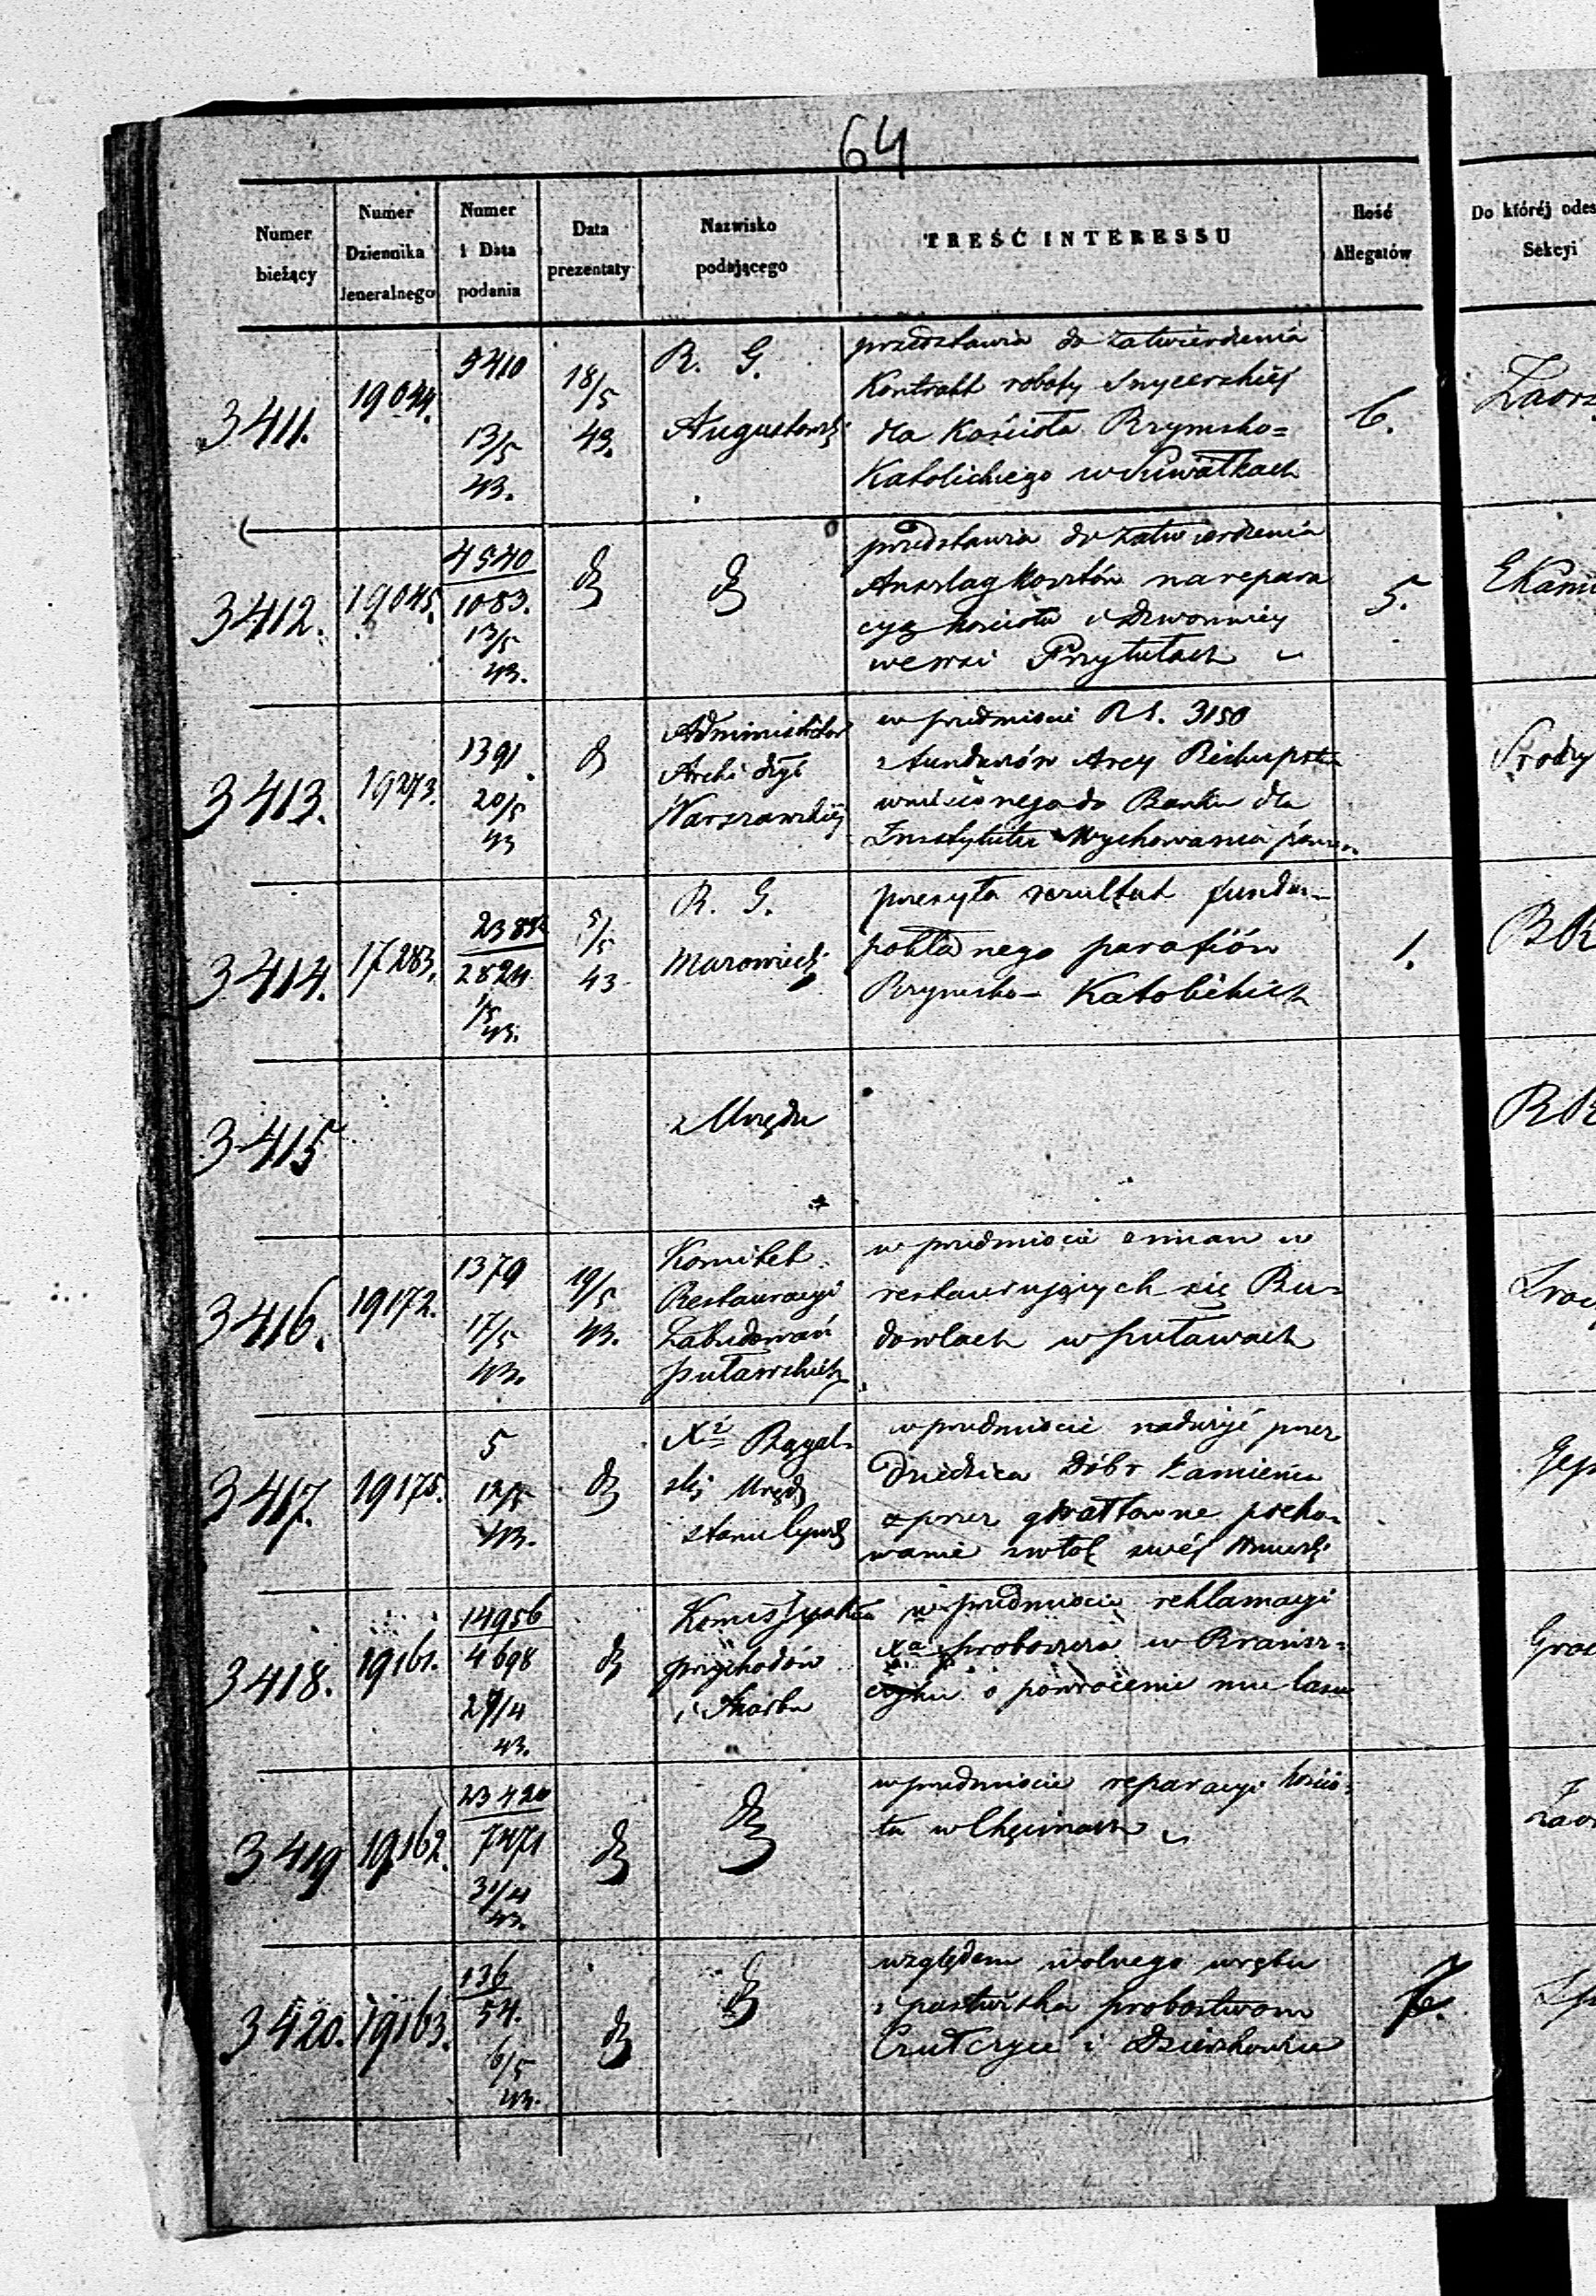 64
Numer bieżący
Numer Dziennika Jeneralnego
Numer i Data podania
Data prezentaty
Nazwisko podającego
TREŚĆ INTERESSU
Ilość Allegatów
Do któréj odes
Sekcyi
3411. 19044. 5410 13/5 43. 18/5 43. R. G. Augustowski
przedstawia do zatwierdzenia
Kontrakt roboty Snycerskiéj
dla Kościoła Rzymsko=
Katolickiego w Suwałkach
6.
3412. 19045. 4540 1083. 13/5 43. 
przedstawia do zatwierdzenia
Anszlag kosztów na repara
cyą kościoła i dzwonnicy
we wsi Przytułach
5.
3413. 19273. 1391 20/5 43
Administrator
Archi dyć
Warszawskiéj
w przedmiocie RS. 3150
z funduszów Arcy Biskupstwa
wniesionego do Banku dla
Instytutu Wychowania
3414. 17283. 2824 1/5 43. 5/5 43
R. G.
Mazowiecki
przesyła rezultat fundu=
pokładnego parafiów
Rzymsko- Katolickich
1.
3415
z Urzędu
3416. 19172. 1379 17/5 43. 19/5 43.
Komitet
Restauracyi
Zabudowań
Puławskich
w przedmiocie zmian w
restaurujących się Bu=
dowlach w Puławach
3417. 19175. 5 12/5 43.
ski Urzęd
Stanu Cywil
w przedmiocie nadużyć przez
Dziedzica Dóbr Kamieńca
przez gwałtowne pocho=
wanie zwłok swéj
3418. 19161. 14956 4698 29/4 43.
przychodów
i Skarbu
w przedmiocie reklamacyi
Xa proboszcza w Brańsz=
czyku o powrócenie mu lasu
3419 19162. 23420 7471 43.
w przedmiocie reparacyi kościo=
ła w Chęcinach
3420. 19163. 136 54. 6/5 43.
względem wolnego wrębu
i pastwiska probostwom
Czułczyce i Dzierzkowice